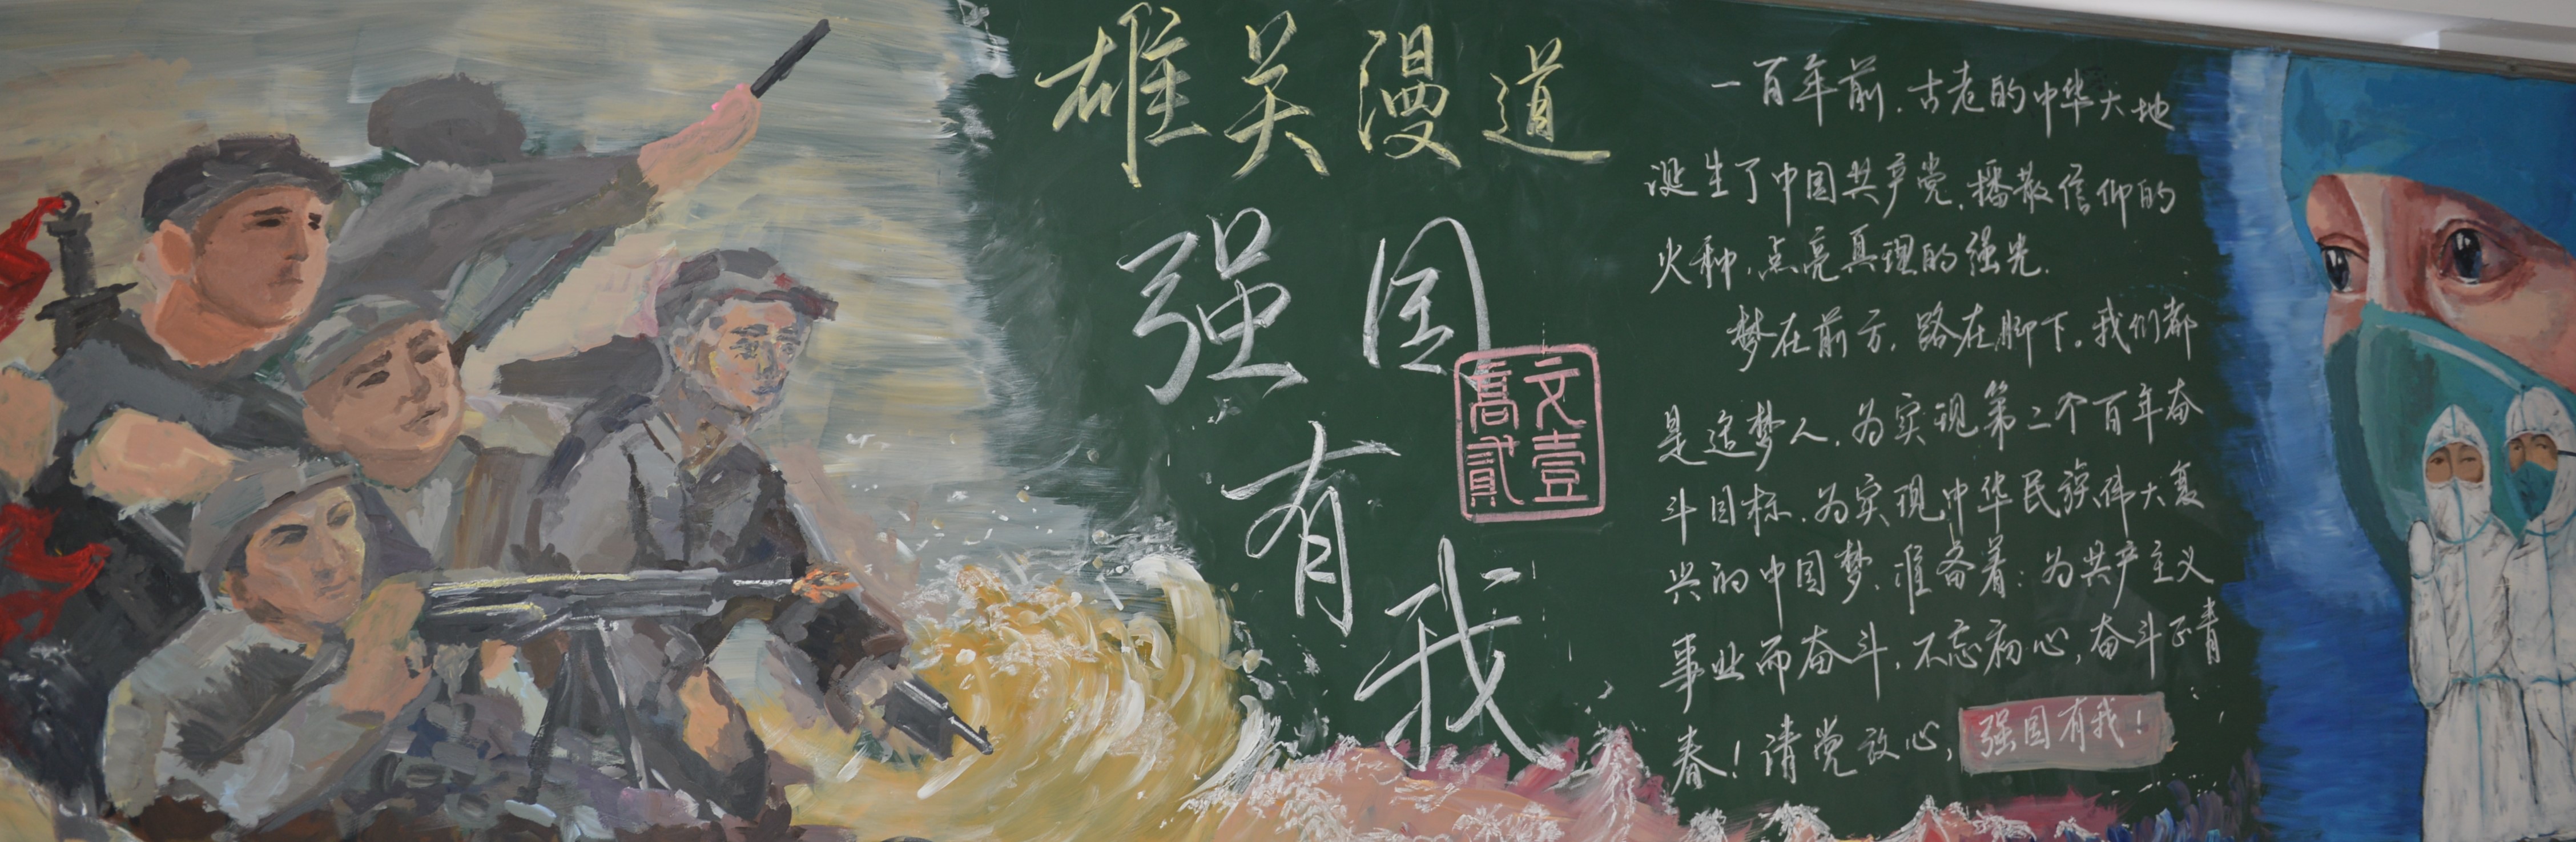 雄关漫道
强国
有
我
文壹
高贰
一百年前,古老的中华大地
诞生了中国共产党,播散信仰的
火种,点亮真理的强光.
梦在前方,路在脚下。我们都
是追梦人,为实现第二个百年奋
斗目标,为实现中华民族伟大复
兴的中国梦,准备着:为共产主义
事业而奋斗,不忘初心,奋斗正青
春!请党放心,强国有我!